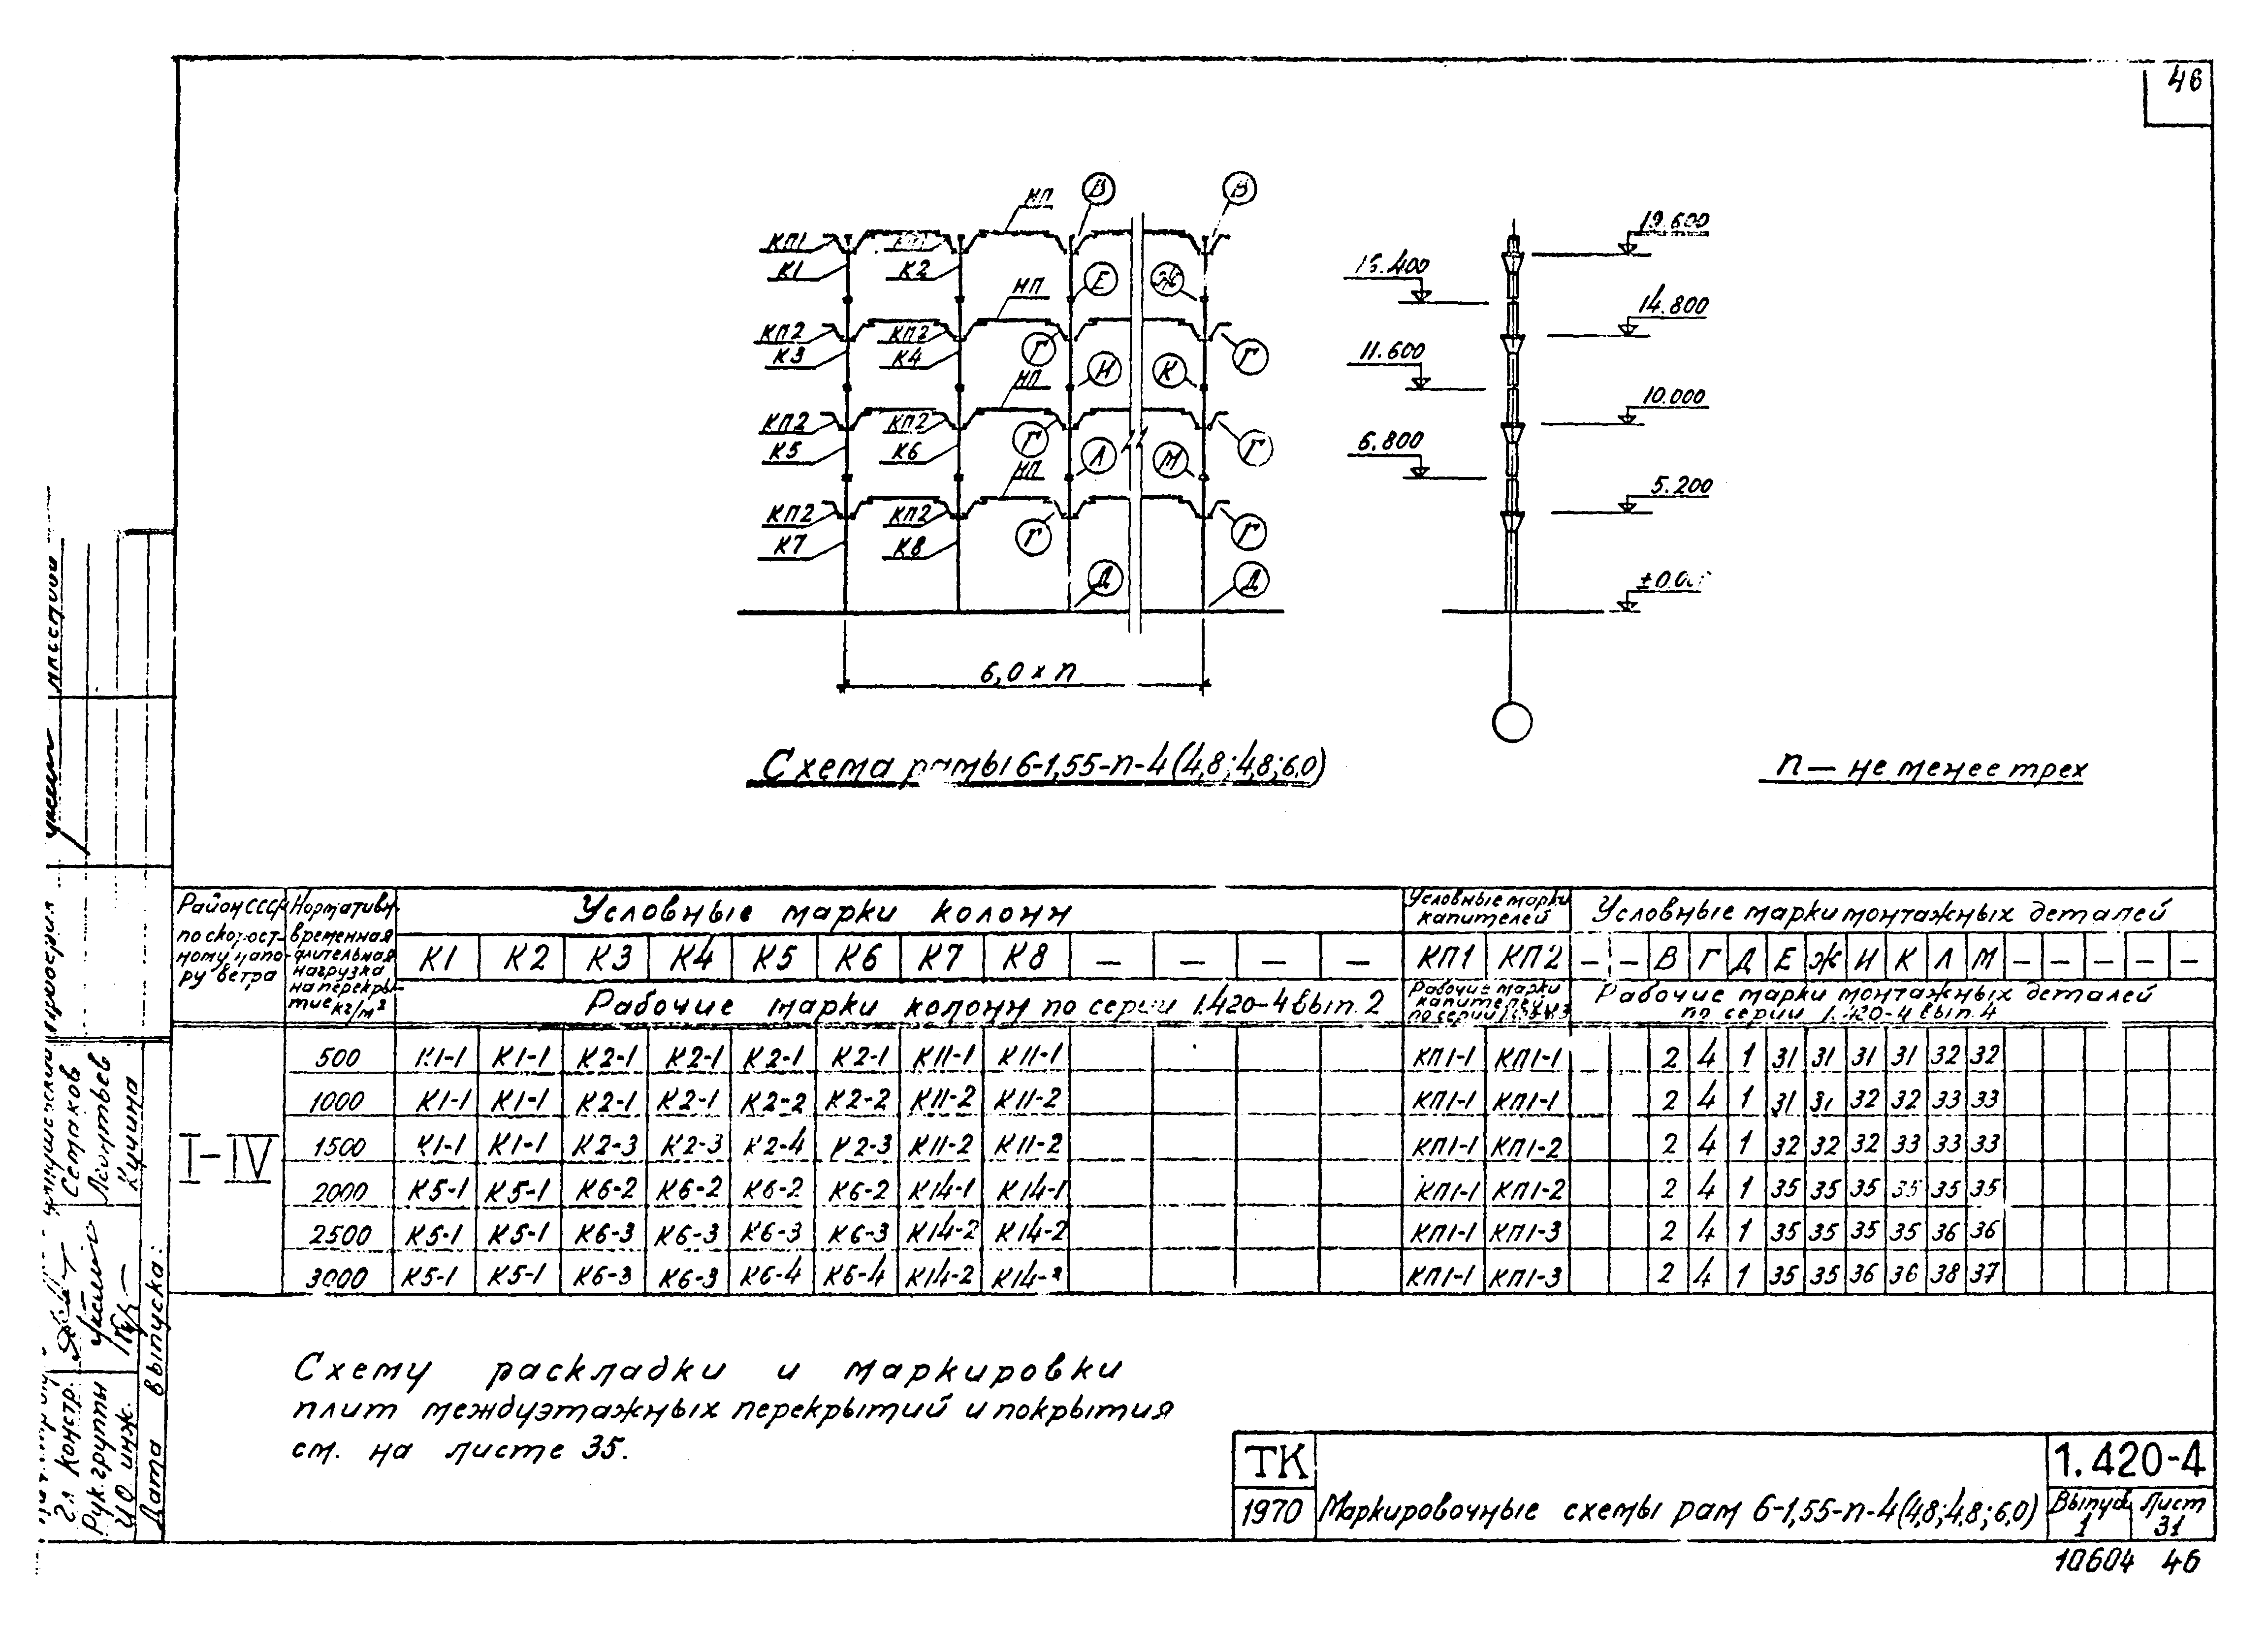 46
НП В В
КП1 К2 19.600
К1 16.400
Е Ж
НП 14.800
КП2 КП2
К3 К4 Г Г 11.600
НП И К
10.000
КП2 КП2 Г Г
К5 К6 6.800
НП Л М
5.200
КП2 КП2 Г Г
К7 К8
Д Д
6,0 х п
Схема рамы 6-1,55-п-4 (4,8; 4,8; 6,0)
п — не менее трех
Район СССР по скорост- ному напо- ру ветра
Нормативн. временная длительная нагрузка на перекры- тие кг/м²
Условные марки колонн
Условные марки капителей
Условные марки монтажных деталей
К1 К2 К3 К4 К5 К6 К7 К8 — — — — КП1 КП2 — — В Г Д Е Ж И К Л М — — — — —
Рабочие марки колонн по серии 1.420-4 вып. 2
Рабочие марки капителей по серии
Рабочие марки монтажных деталей
по серии 1.420-4 вып. 4
I-IV
500 К1-1 К1-1 К2-1 К2-1 К2-1 К2-1 К11-1 К11-1 КП1-1 КП1-1 2 4 1 31 31 31 31 32 32
1000 К1-1 К1-1 К2-1 К2-1 К2-2 К2-2 К11-2 К11-2 КП1-1 КП1-1 2 4 1 31 31 32 32 33 33
1500 К1-1 К1-1 К2-3 К2-3 К2-4 К2-3 К11-2 К11-2 КП1-1 КП1-2 2 4 1 32 32 32 33 33 33
2000 К5-1 К5-1 К6-2 К6-2 К6-2 К6-2 К14-1 К14-1 КП1-1 КП1-2 2 4 1 35 35 35 35 35 35
2500 К5-1 К5-1 К6-3 К6-3 К6-3 К6-3 К14-2 К14-2 КП1-1 КП1-3 2 4 1 35 35 35 35 36 36
3000 К5-1 К5-1 К6-3 К6-3 К6-4 К6-4 К14-2 КП1-1 КП1-3 2 4 1 35 35 36 36 38 37
Схему раскладки и маркировки
плит междуэтажных перекрытий и покрытия
см. на листе 35.
ТК
1970
Маркировочные схемы рам 6-1,55-п-4 (4,8; 4,8; 6,0)
1.420-4
Выпуск 1
Лист 31
10604 46
Семаков
Леонтьев
Кущина
Гл. констр.
Рук. группы
И О инж.
Дата выпуска: